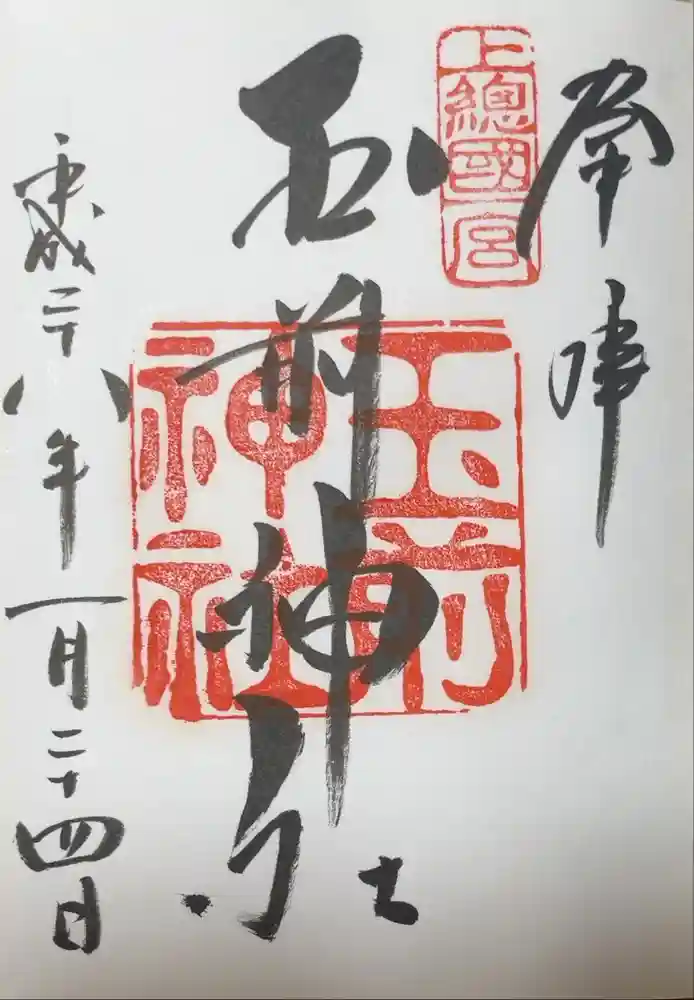 奉拝
上總國一宮
玉前神社
玉前神社
平成二十八年一月二十四日